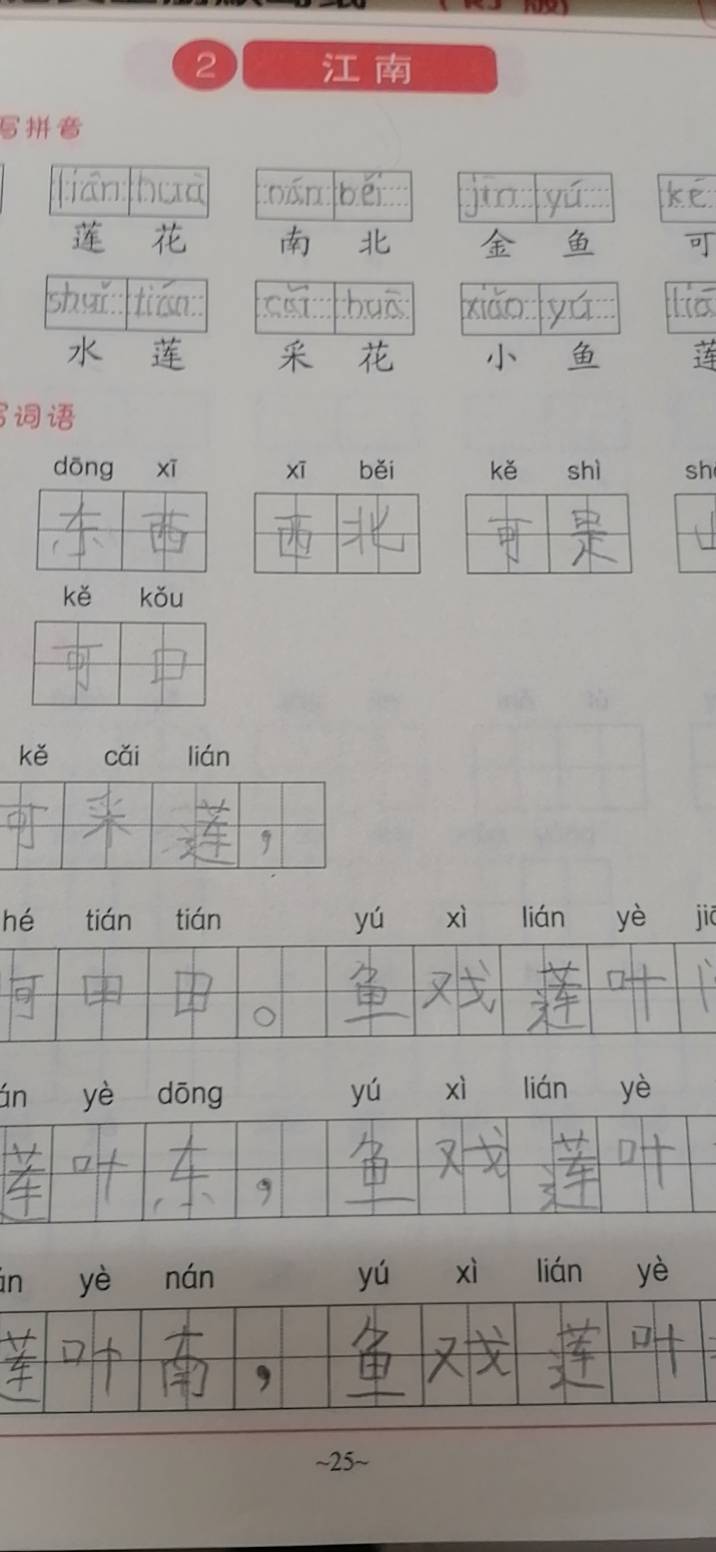 2 江南
写拼音
lián huā nán běi jīn yú kě
莲 花 南 北 金 鱼 可
shuǐ tián cǎi huā xiǎo yú
水 莲 采 花 小 鱼 莲
写词语
dōng xī xī běi kě shì
东 西 西 北 可 是
kě kǒu
可 口
kě cǎi lián
可 采 莲 ，
hé tián tián yú xì lián yè
何 田 田 。 鱼 戏 莲 叶
yè dōng yú xì lián yè
莲 叶 东 ， 鱼 戏 莲 叶
yè nán yú xì lián yè
莲 叶 南 ， 鱼 戏 莲 叶
~25~